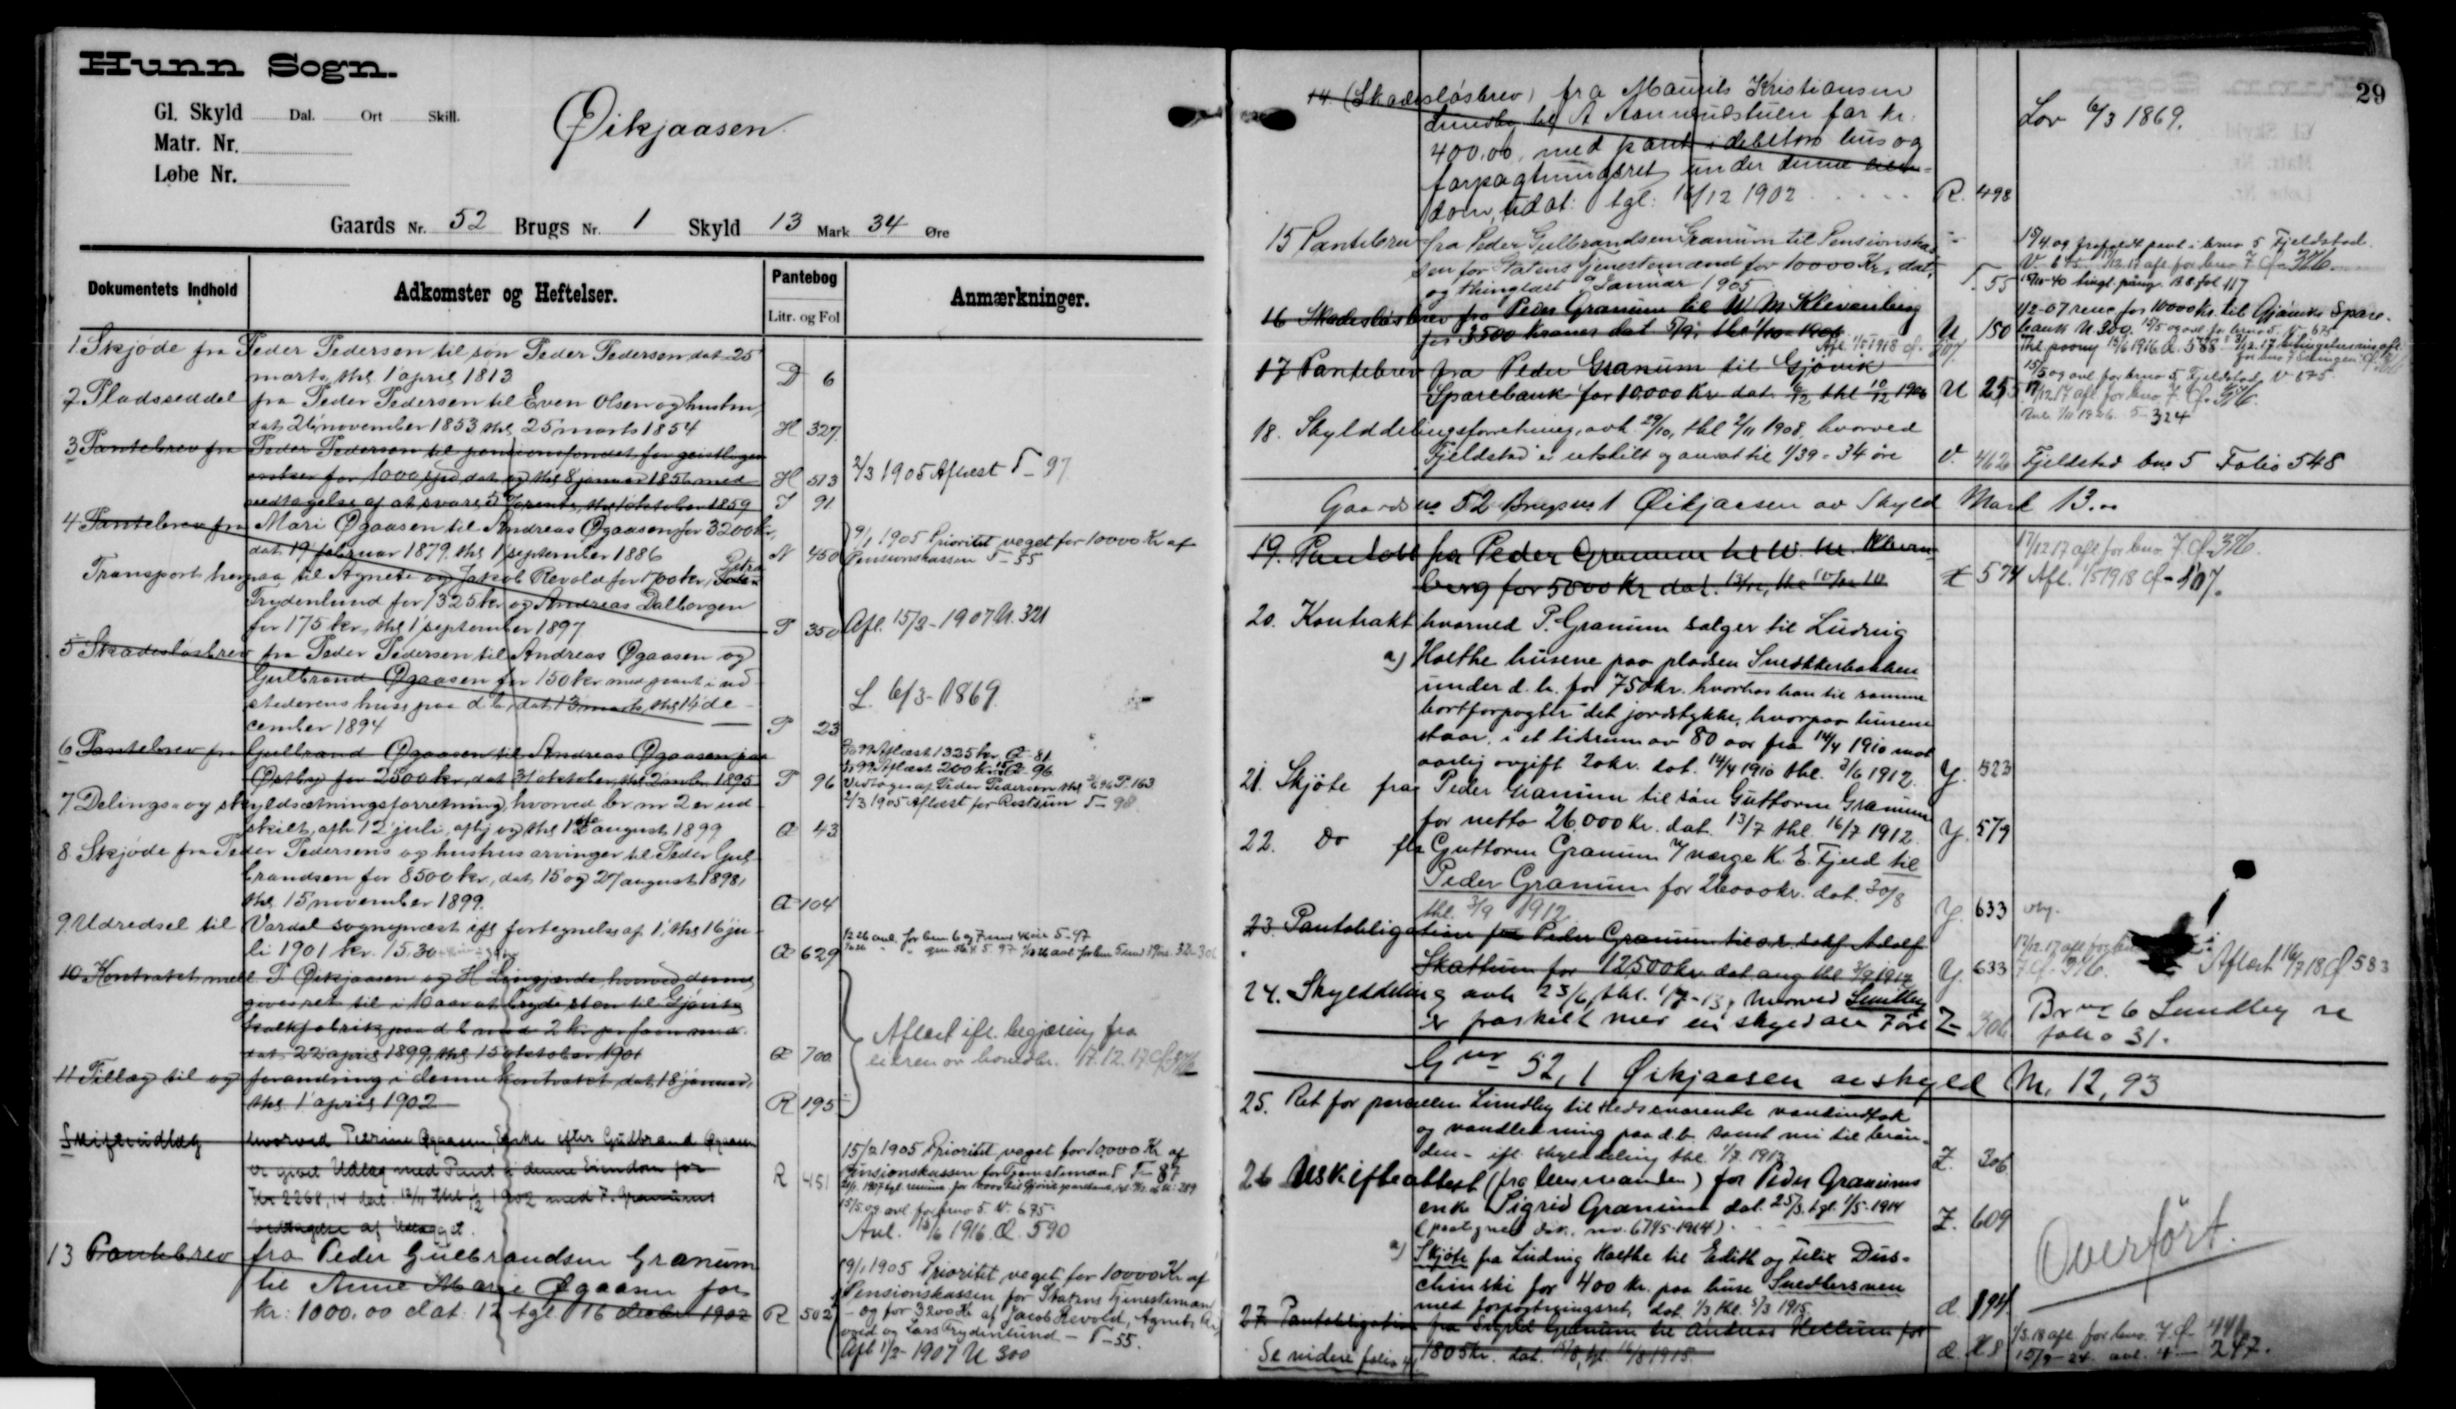 Hunn Sogn.
Gl. Skyld Dal. Ort Skill.
Matr. Nr.
Løbe Nr.
Øikjaasen
Gaards Nr. 52 Brugs Nr. 1 Skyld 13 Mark 34 Øre
Dokumentets Indhold
Adkomster og Heftelser.
Pantebog
Litr. og Fol
Anmærkninger.
1 Skjøde fra Peder Pedersen til søn Peder Pedersen dat 25
marts, thl 1 april 1813 D 6
2 Pladsseddel fra Peder Pedersen til Even Olsen og hustru,
dat 26 november 1853 thl 25 marts 1854 H 327
3 Pantebrev fra Peder Pedersen til pensionsfondet for geistliges
enker for 1000 spd dat og thl 8 januar 1856 med H 513
vedtagelse af at svare 5% rente, thl 1 oktober 1859 I 91
2/3 1905 Aflæst T- 97
4 Pantebrev fra Mari Øgaasen til Andreas Øgaasen for 3200 kr,
dat 19 februar 1879, thl 1 september 1886 N 450
9/1 1905 Prioritet veget for 10000 Kr af
Pensionskassen T-55
Transport herpaa til Agnete og Jakob Revold for 1700 kr,
Frydenlund for 1325 kr og Andreas Dalborgen
for 175 kr, thl 1 september 1897 P 350
Afl. 15/2-1907 U. 321
5 Skadesløsbrev fra Peder Pedersen til Andreas Øgaasen og
Gulbrand Øgaasen for 150 kr med pant i ud-
stederens huse paa d b, dat 13 marts, thl 14 de-
cember 1894 P 23
L. 6/3-1869
6 Pantebrev fra Gulbrand Øgaasen til Andreas Øgaasen paa
Østby for 2500 kr, dat 31 oktober, thl 2 novbr. 1895 P 96
Aflæst 1325 kr Q- 81
Aflæst 200 kr Q- 96
Vedtages af Peder Pedersen thl P. 163
2/3 1905 Aflæst for Restsum T- 98
7 Delings- og skyldsætningsforretning, hvorved br nr 2 er ud-
skilt, afh 12 juli, afhj og thl 12 august 1899 Q 43
8 Skjøde fra Peder Pedersens og hustrus arvinger til Peder Gul-
brandsen for 8500 kr, dat 15 og 27 august 1898,
thl 15 november 1899. Q 104
9 Udredsel til Vardal sogneprest ifl fortegnelse af 1, thl 16 ju-
li 1901 kr. 15.30 Q 629
10 Kontrakt mell. P. Øikjaasen og H Lingjærde, hvorved denne
gives ret til i 10 aar at bryde sten til Gjøvik
kalkfabrik paa d b mod 2 kr pr favn med.
dat 22 april 1899, thl 15 oktober 1901 Q 700
Aflæst ifl. begjæring fra
eieren av hovedbr. 17.12.17
11 Tillæg til og forandring i denne kontrakt, dat 18 januar,
thl. 1 april 1902 R 195
Skifteudlæg hvorved Pernine Øgaasen, Enke efter Gudbrand Øgaasen
er givet Udlæg med Pant i denne Eiendom for
Kr 2268,14 dat. thl 1902 med P. Granums
vedtagelse af Udlægget. R 451
15/2 1905 Prioritet veget for 10,000 Kr af
Pensionskassen for Tjenestemænd T-87
15/5 og avl for brno 5. V. 675
Anl. 15/6 1916. Q. 590
13 Pantebrev fra Peder Gulbrandsen Granum
til Anne Marie Øgaasen for
kr: 1000.00 dat: 12 tgl. 16 decbr 1902 R 502
9/1 1905 Prioritet veget for 10000 Kr af
Pensionskassen for Statens Tjenestemænd
- og for 3200 Kr af Jacob Revold, Agnete
og Lars Frydenlund - T-55.
Afl 1/2-1907 U 300
29
14. (Skadesløsbrev) fra Maurits Kristiansen
Lundby til A Aannerudstuen for kr.
400.00, med pant i debitors hus og
forpagtningsret under denne eien-
dom, udat: tgl: 16/12 1902 R. 498
Lov 6/3 1869.
15 Pantebrev fra Peder Gulbrandsen Granum til Pensionskas-
sen for Statens Tjenestemænd for 10000 Kr, dat.
og thinglæst Januar 1905 T. 55
15/4 og frafaldt pant i brno 5 Fjeldstad.
V. 675 17/12 17 afl. for brno 7
16 Skadesløsbrev fra Peder Granum til W. M. Klevenberg
for 3500 kroner dat 5/9, thl 1/10 1906 U 150
Afl. 1/5 1918
1/2-07 rene for 10000 Kr. til Gjøviks Spare-
bank U 300.
17 Pantebrev fra Peder Granum til Gjøvik
Sparebank for 10,000 Kr dat 6/12 thl 10/12 1906 U 253
15/5 og avl for brno 5 Fjeldstad V 675
17/12 17 afl. for brno 7.
18. Skylddelingsforretning, avh. 29/10, thl 2/11 1908, hvorved
Fjeldstad er utskilt og ansat til 1/39 = 34 øre V. 462 Fjeldstad bno 5 Folio 548
Gaardsno 52 Brugsno 1 Øikjaasen av Skyld Mark 13.00
19. Pantobl fra Peder Granum til W. M. Kleven-
berg for 5000 Kr dat. 574
17/12 17 afl for bno. 7
Afl. 1/5 1918
20. Kontrakt hvorved P. Granum sælger til Ludvig
a) Holthe husene paa pladsen Snedkerbakken
under d. b. for 750 kr. hvorhos han til samme
bortforpagter det jordstykke, hvorpaa husene
staar, i et tidsrum av 80 aar fra 14/4 1910 mot
aarlig avgift 20 kr. dat. 14/4 1910 thl. 3/6 1912. Y. 523
21. Skjøte fra Peder Granum til søn Guttorm Granum
for netto 26,000 Kr. dat. 13/7 thl. 16/7 1912. Y. 579
22. Do fra Guttorm Granum v/ værge K. E. Fjeld til
Peder Granum for 26000 kr. dat. 30/8
thl. 3/9 1912. Y 633
23. Pantobligation fra Peder Granum til Adolf
Skattum for 12500 kr dat aug thl. 3/9 1912 Y. 633
Aflæst 16/7 18 583
24. Skylddeling avh 23/6, thl. 1/7-13, hvorved Lundby
er fraskilt med en skyld av 7 øre Z 306
Brno 6 Lundby se
folio 31.
Gno 52, 1 Øikjaasen av skyld M. 12,93
25. Ret for parcellen Lundby til stedsevarende vandindtak
og vandledning paa d. b. samt vei til brøn-
den - ifl. skylddeling thl. 1/7 1913 Z. 306
26 Uskifteattest (fra lensmanden) for Peder Granums
enke Sigrid Granum dat. 25/3, tgl. 1/5-1914 Z. 609
a) Skjøte fra Ludvig Holthe til Edith og Felix Dus-
chinski for 400 kr. paa huse
med forpagtningsret, dat. 1/3 thl. 1/3 1915
27. Pantobligation fra Sigrid Granum til Andreas Hellum for
1805 kr. dat. tgl. 16/8 1915
Overført.
Se videre folio